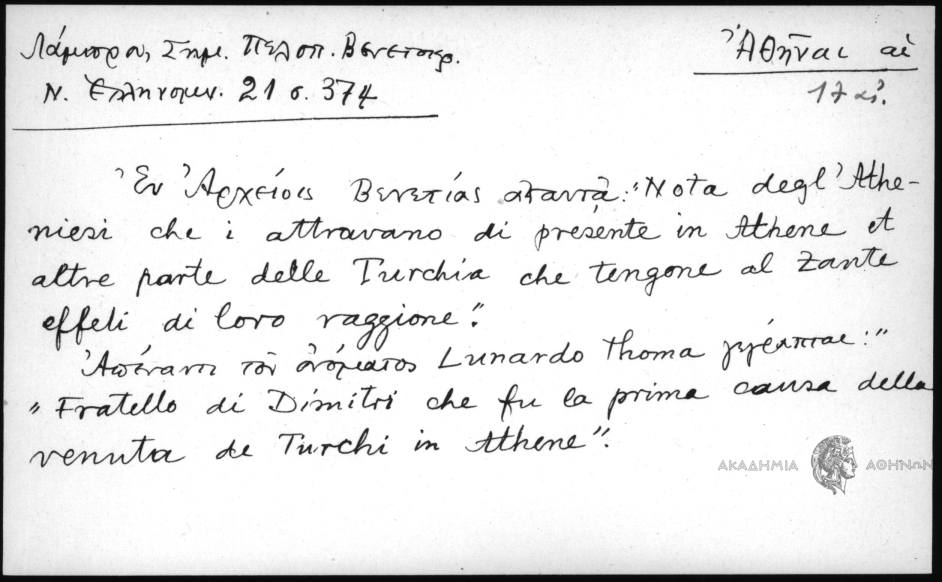 Λάμπρου, Σημ. Πελοπ. Βενετοκρ.
Ν. Ἑλληνομν. 21 σ. 374
Ἀθῆναι αἱ
17 αἰ.
Ἐν Ἀρχείοις Βενετίας ἀπαντᾷ: "Nota degl' Athe-
niesi che i attravano di presente in Athene et
altre parte delle Turchia che tengone al Zante
effeli di loro raggione".
Ἀπέναντι τοῦ ὀνόματος Lunardo Thoma γέγραπται:"
"Fratello di Dimitri che fu la prima causa della
venuta de Turchi in Athene".
ΑΚΑΔΗΜΙΑ ΑΘΗΝΩΝ